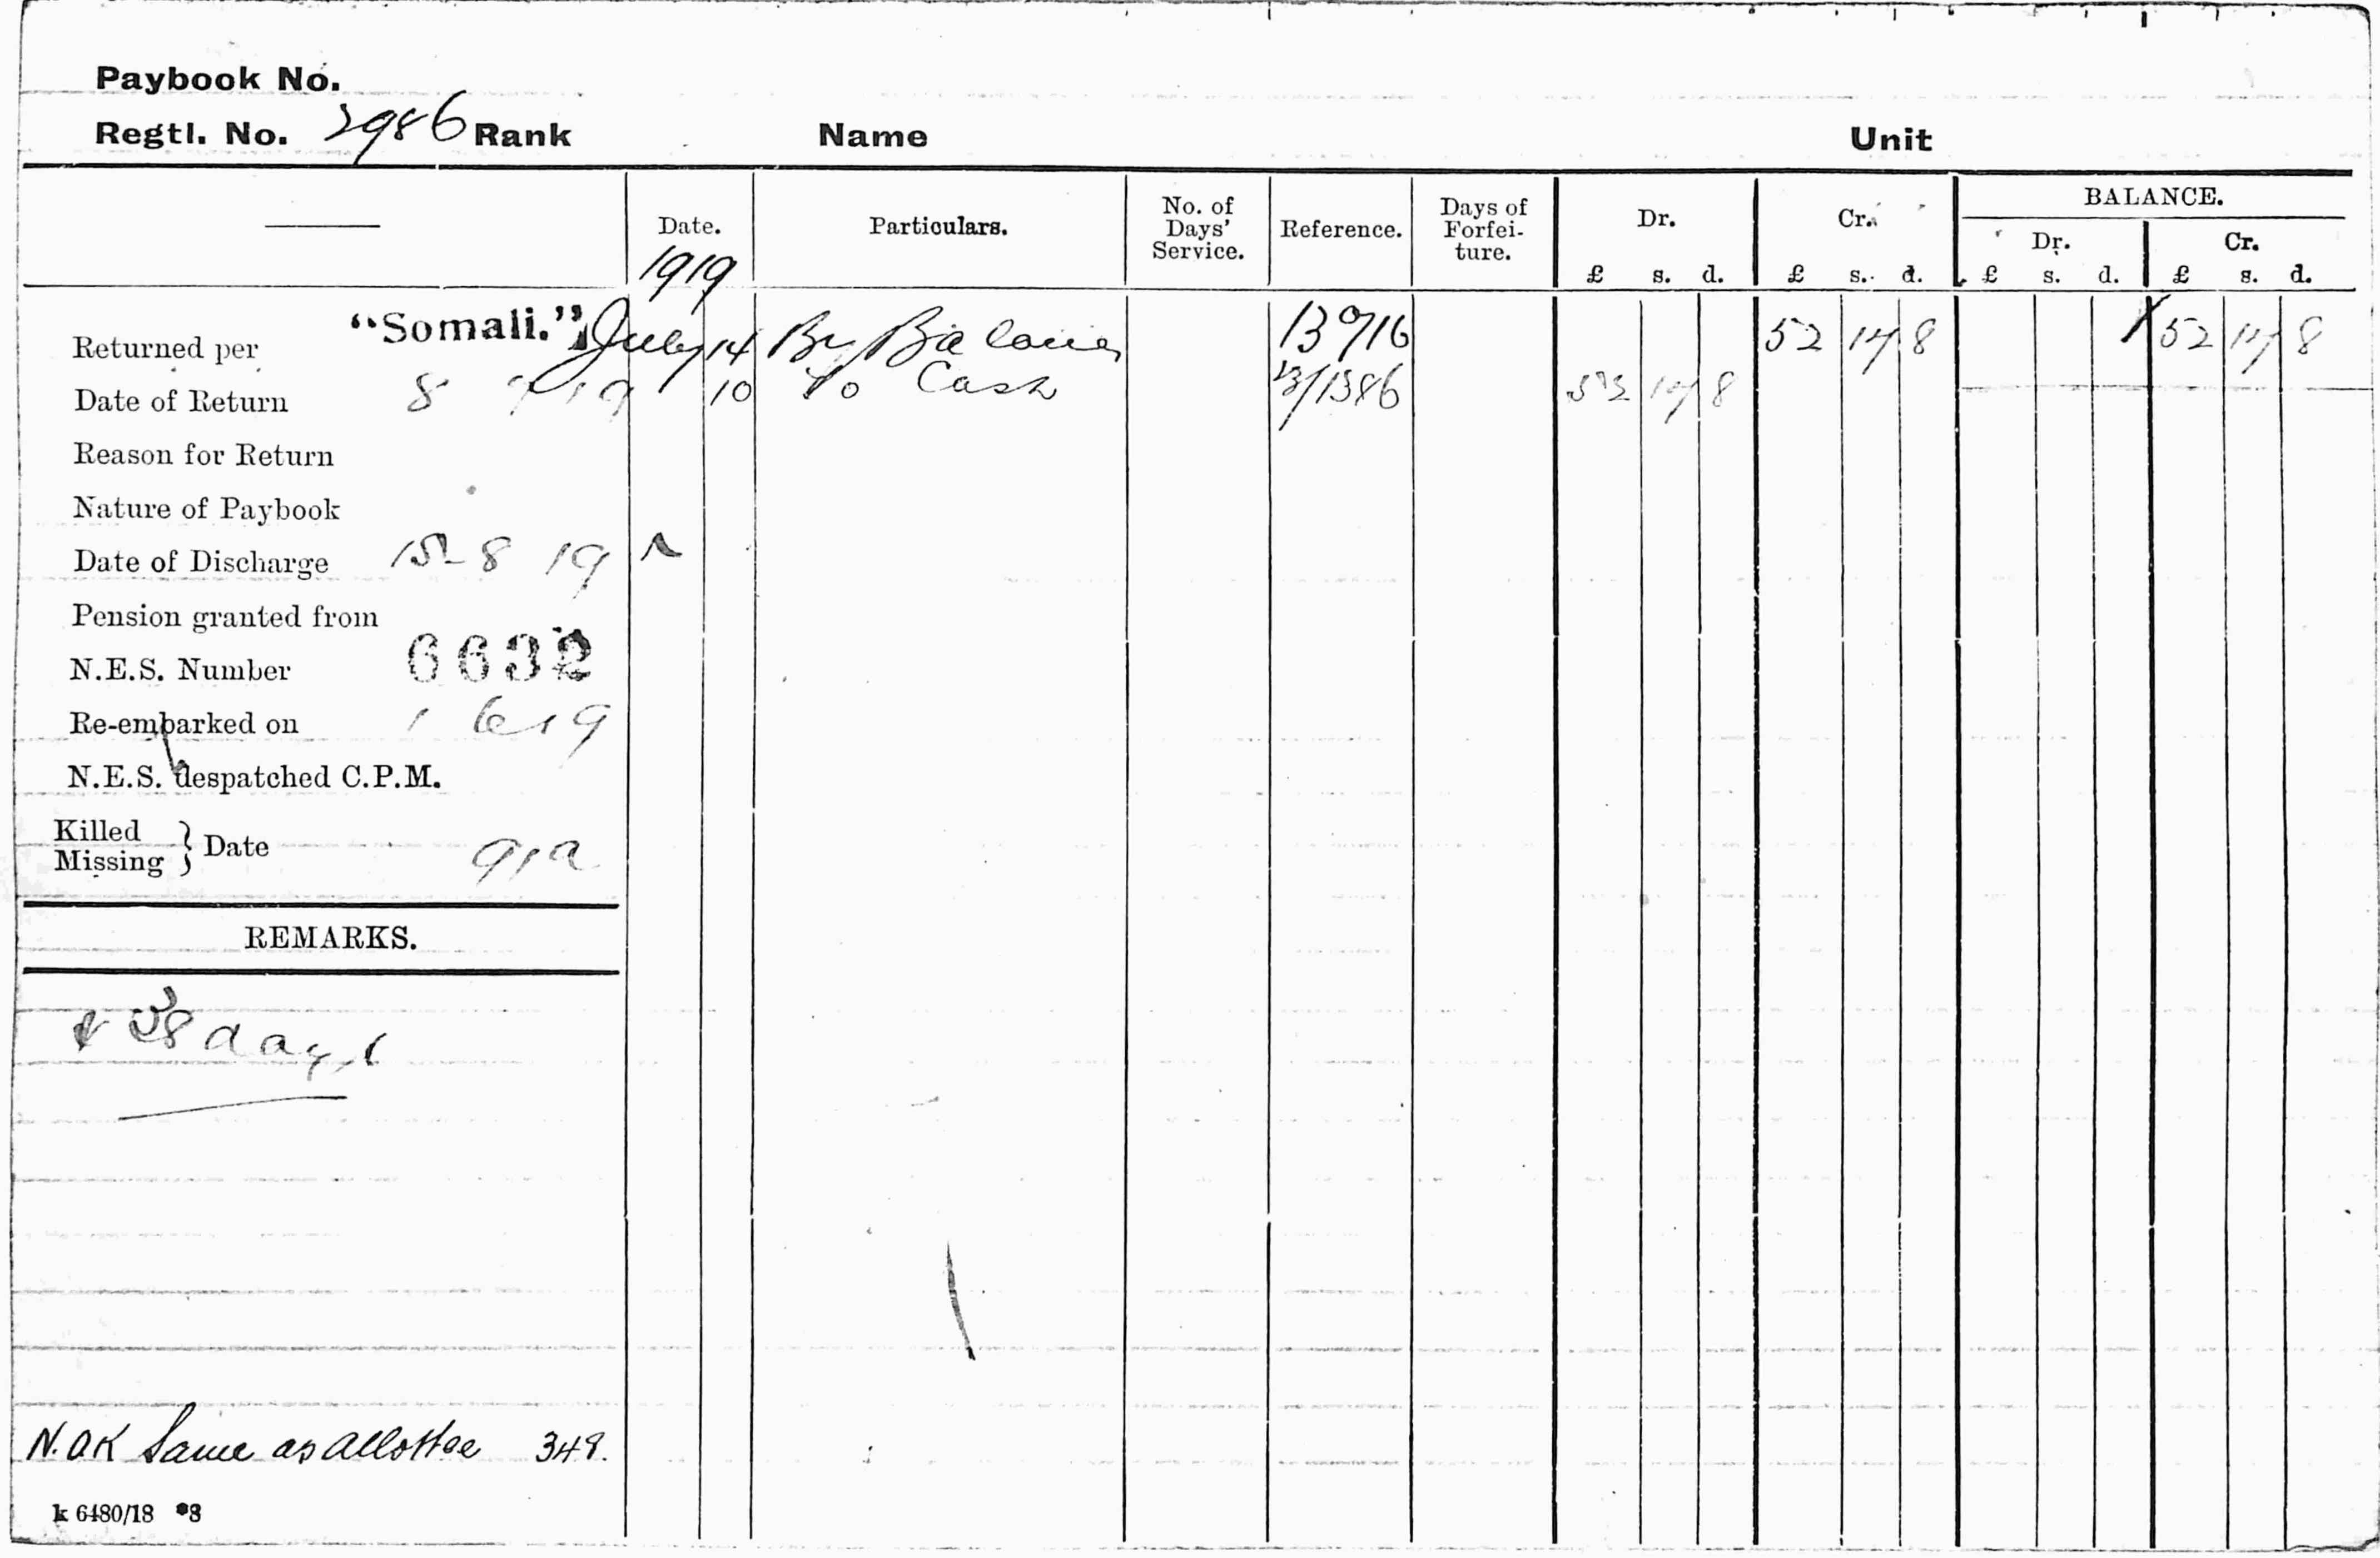 Paybook No.
Regtl. No. 2986 Rank Name Unit
Date. Particulars. No. of Days' Service. Reference. Days of Forfei-ture. Dr. Cr. BALANCE.
Dr. Cr.
£ s. d. £ s. d. £ s. d. £ s. d.
1919
Returned per "Somali." July 14 By Balance 52 14 8 52 14 8
Date of Return 8 7 19 10 To Cash 13/1386 52 14 8
Reason for Return
Nature of Paybook
Date of Discharge 15 8 19
Pension granted from
N.E.S. Number 6632
Re-embarked on 1 6 19
N.E.S. despatched C.P.M.
Killed
Missing } Date
REMARKS.
days
N.O.K Same as allottee 348.
k 6480/18